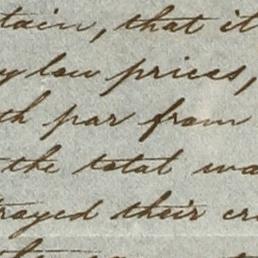 tain, that it
y low prices,
th par from
the total wa
trayed their cr